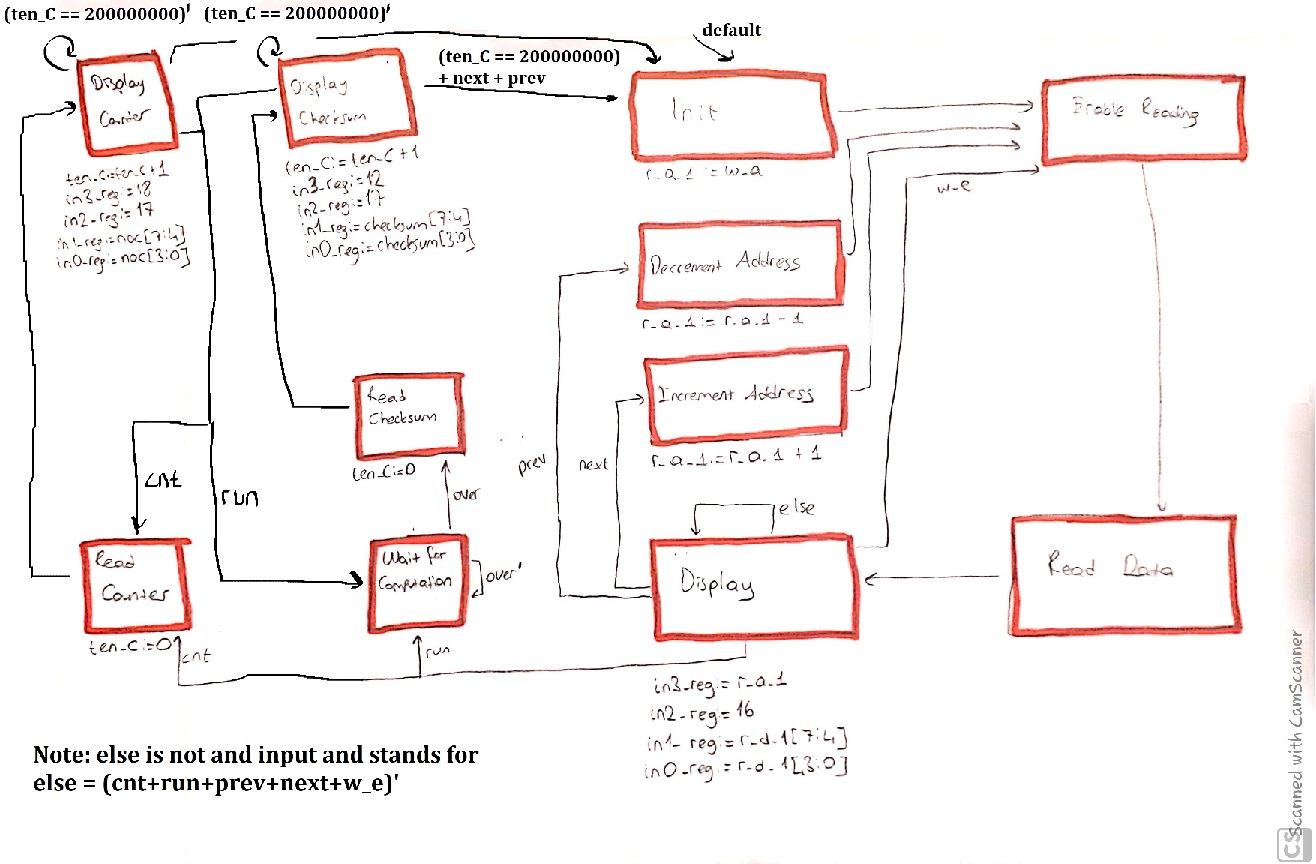 (ten_C == 200000000)' (ten_C == 200000000)'
default
(ten_C == 200000000)
+ next + prev
Display
Counter
ten_C:=ten_C+1
in3_reg:=18
in2_reg:=17
in1_reg:=noc[7:4]
in0_reg:=noc[3:0]
Display
Checksum
ten_C:=ten_C+1
in3_reg:=12
in2_reg:=17
in1_reg:=checksum[7:4]
in0_reg:=checksum[3:0]
Init
r_a_1:=w_a
Enable Reading
w_e
Decrement Address
r_a_1:=r_a_1-1
Increment Address
r_a_1:=r_a_1+1
Read
Checksum
ten_C:=0
prev
next
cnt
run
over
else
Read
Counter
ten_C:=0
Wait for
Computation
over'
Display
Read Data
cnt
run
in3_reg:=r_a_1
in2_reg:=16
in1_reg:=r_d_1[7:4]
in0_reg:=r_d_1[3:0]
Note: else is not and input and stands for
else = (cnt+run+prev+next+w_e)'
CS Scanned with CamScanner